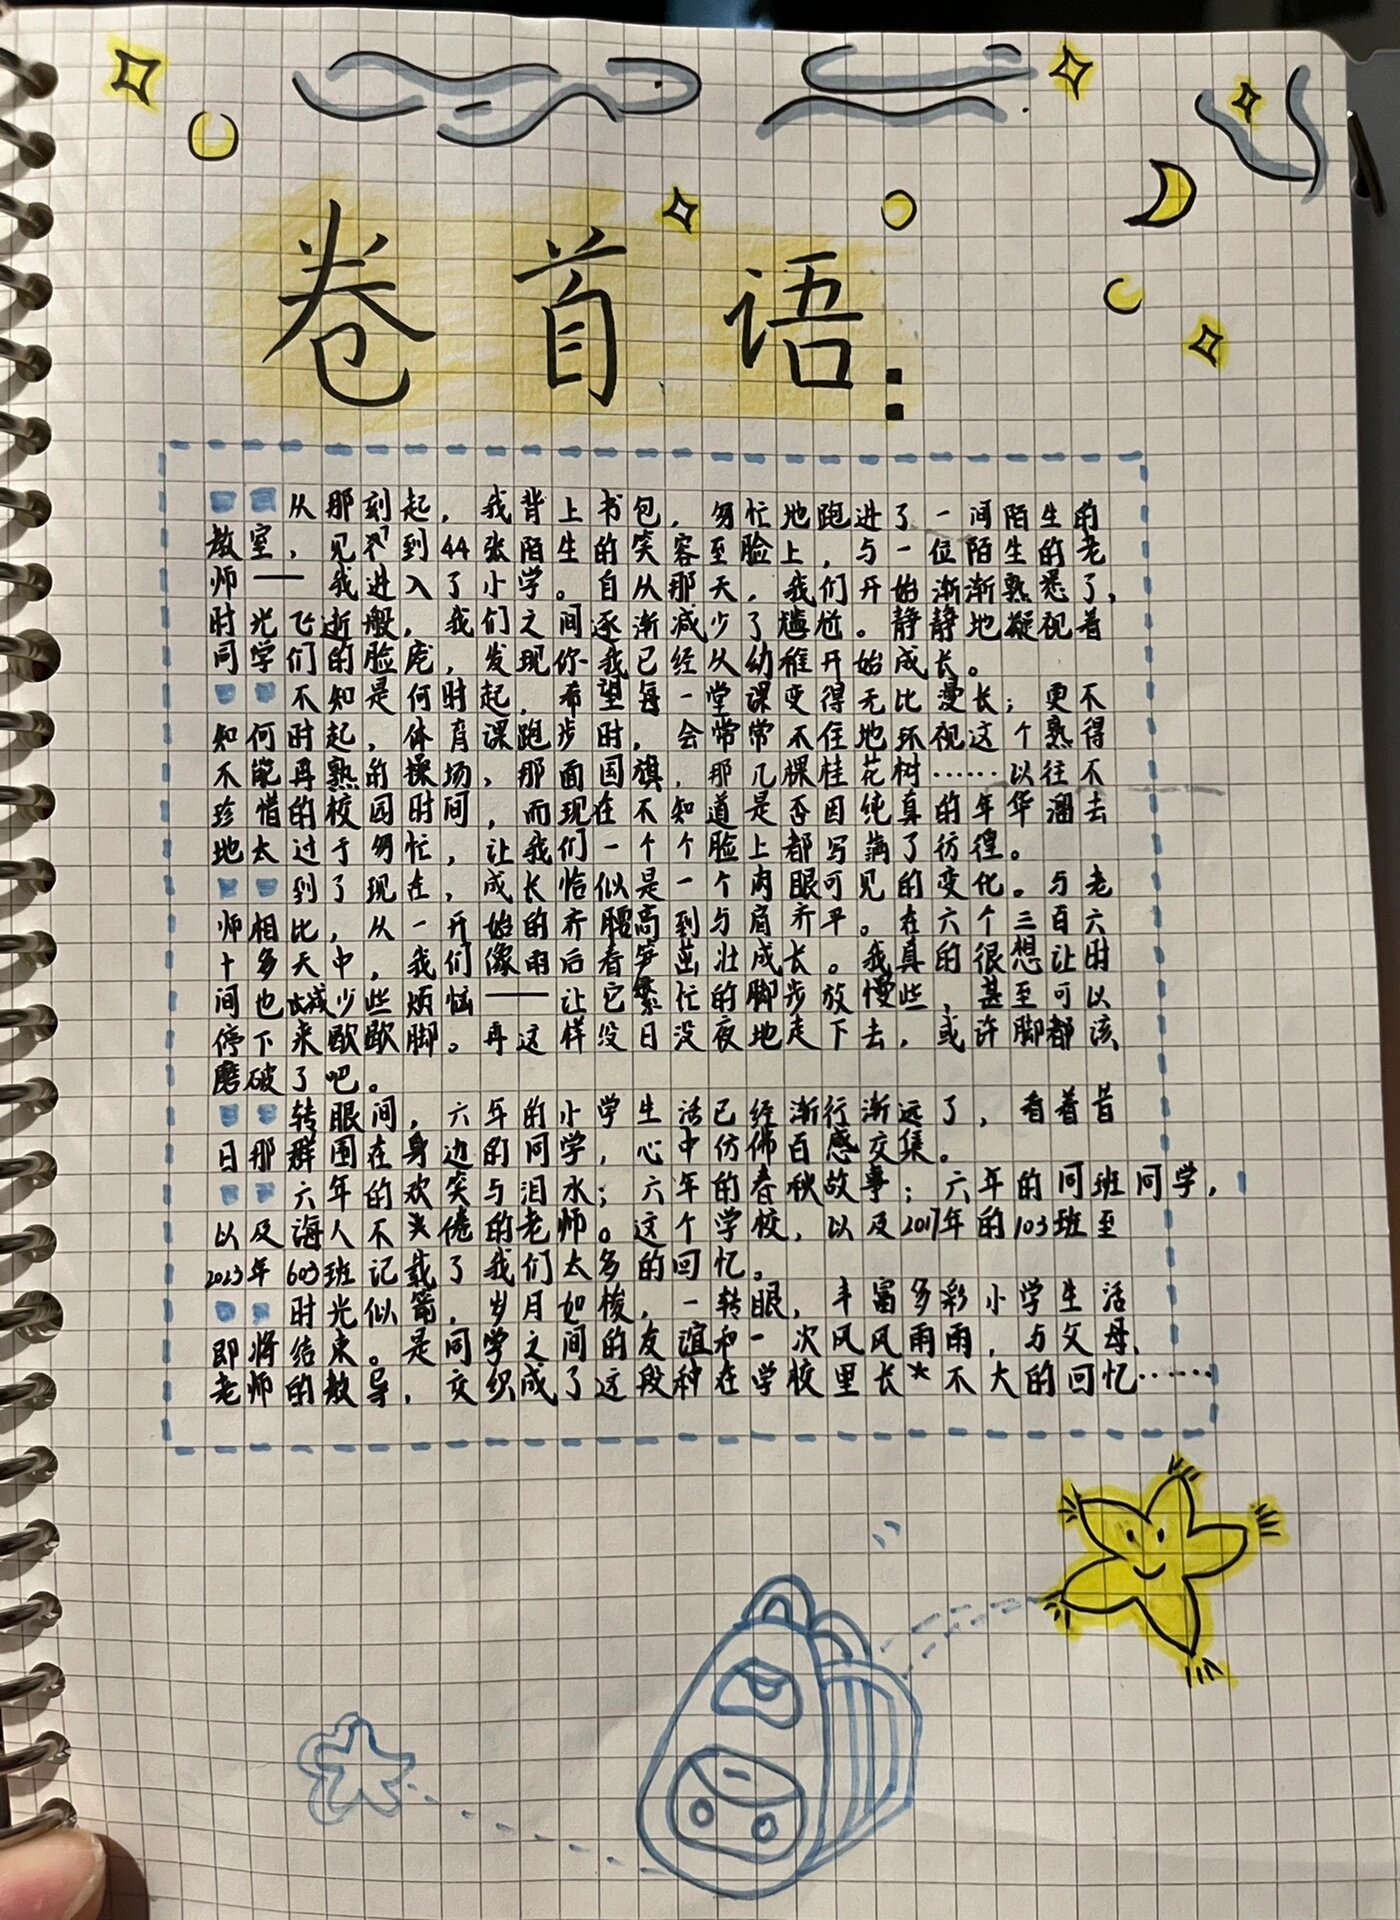 卷首语:
从那刻起，我背上书包，匆忙地跑进了一间陌生的
教室，见到44张陌生的笑容至脸上，与一位陌生的老
师——我进入了小学。自从那天，我们开始渐渐熟悉了，
时光飞逝般，我们之间逐渐减少了尴尬。静静地凝视着
同学们的脸庞，发现你我已经从幼稚开始成长。
不知是何时起，希望每一堂课变得无比漫长；更不
知何时起，体育课跑步时，会常常不住地环视这个熟得
不能再熟的操场，那面国旗，那几棵桂花树……以往不
珍惜的校园时间，而现在不知道是否因纯真的年华溜去
地太过于匆忙，让我们一个个脸上都写满了彷徨。
到了现在，成长恰似是一个肉眼可见的变化。与老
师相比，从一开始的齐腰高到与肩齐平。在六个三百六
十多天中，我们像雨后春笋茁壮成长。我真的很想让时
间也减少些烦恼——让它繁忙的脚步放慢些，甚至可以
停下来歇歇脚。再这样没日没夜地走下去，或许脚都该
磨破了吧。
转眼间，六年的小学生活已经渐行渐远了，看着昔
日那群围在身边的同学，心中仿佛百感交集。
六年的欢笑与泪水；六年的春秋故事；六年的同班同学，
以及诲人不倦的老师。这个学校，以及2017年的103班至
2023年603班记载了我们太多的回忆。
时光似箭，岁月如梭，一转眼，丰富多彩小学生活
即将结束。是同学之间的友谊和一次风风雨雨，与父母、
老师的教导，交织成了这段种在学校里长*不大的回忆……